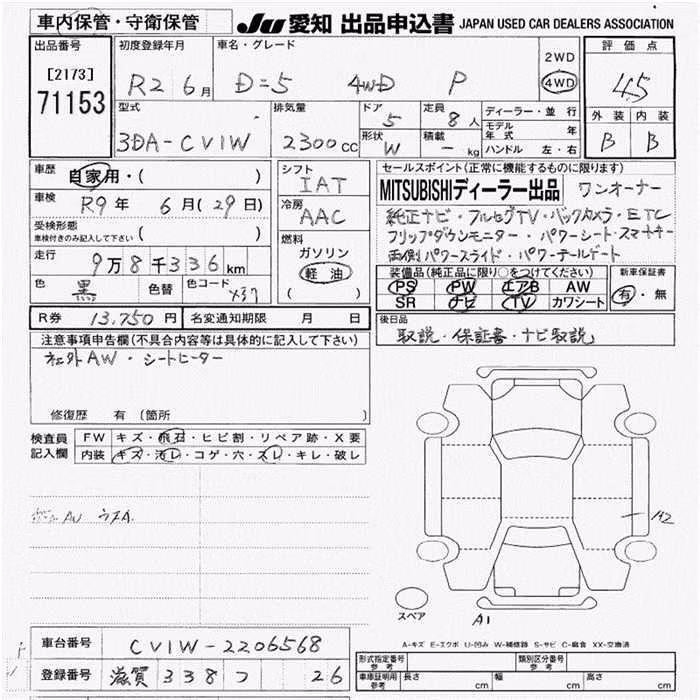 車内保管・守衛保管 JU 愛知 出品申込書 JAPAN USED CAR DEALERS ASSOCIATION
出品番号 初度登録年月 車名・グレード 2WD 評価点
[2173] R2 6月 D=5 4WD P 4WD 4.5
71153
型式 排気量 ドア 定員 ディーラー・並行 外装 内装
3DA-CV1W 2300cc 5 8人 モデル年式 年 B B
形状 W 積載 - kg ハンドル 左・右
車歴 自家用・( ) シフト セールスポイント(正常に機能するものに限ります)
IAT MITSUBISHIディーラー出品 ワンオーナー
車検 R9年 6月(29日) 冷房 純正ナビ・フルセグTV・バックカメラ・ETC
受検形態 AAC フリップダウンモニター・パワーシート・スマートキー
車検付きのみ記入して下さい ( ) 燃料 両側パワースライド・パワーテールゲート
走行 9万8千336km ガソリン 装備品(純正品に限り○をつけてください) 新車保証書
軽油 PS PW エアB AW 有・無
色 黒 色替 色コード X37 ( ) SR ナビ TV カワシート
R券 13,750円 名変通知期限 月 日 後日品
注意事項申告欄(不具合内容等は具体的に記入して下さい) 取説・保証書・ナビ取説
社外AW・シートヒーター
修復歴 有 (箇所
検査員 FW キズ・飛石・ヒビ割・リペア跡・X要
記入欄 内装 キズ・汚レ・コゲ・穴・スレ・キレ・破レ
AW
A2
スペア A1
A-キズ E-エクボ U-凹み W-補修跡 S-サビ C-腐食 XX-交換済
車台番号 CV1W-2206568
形式指定番号 参考 類別区分番号 参考
登録番号 滋賀 338 つ 26 車庫証明用 参考 長さ cm 幅 cm 高さ cm